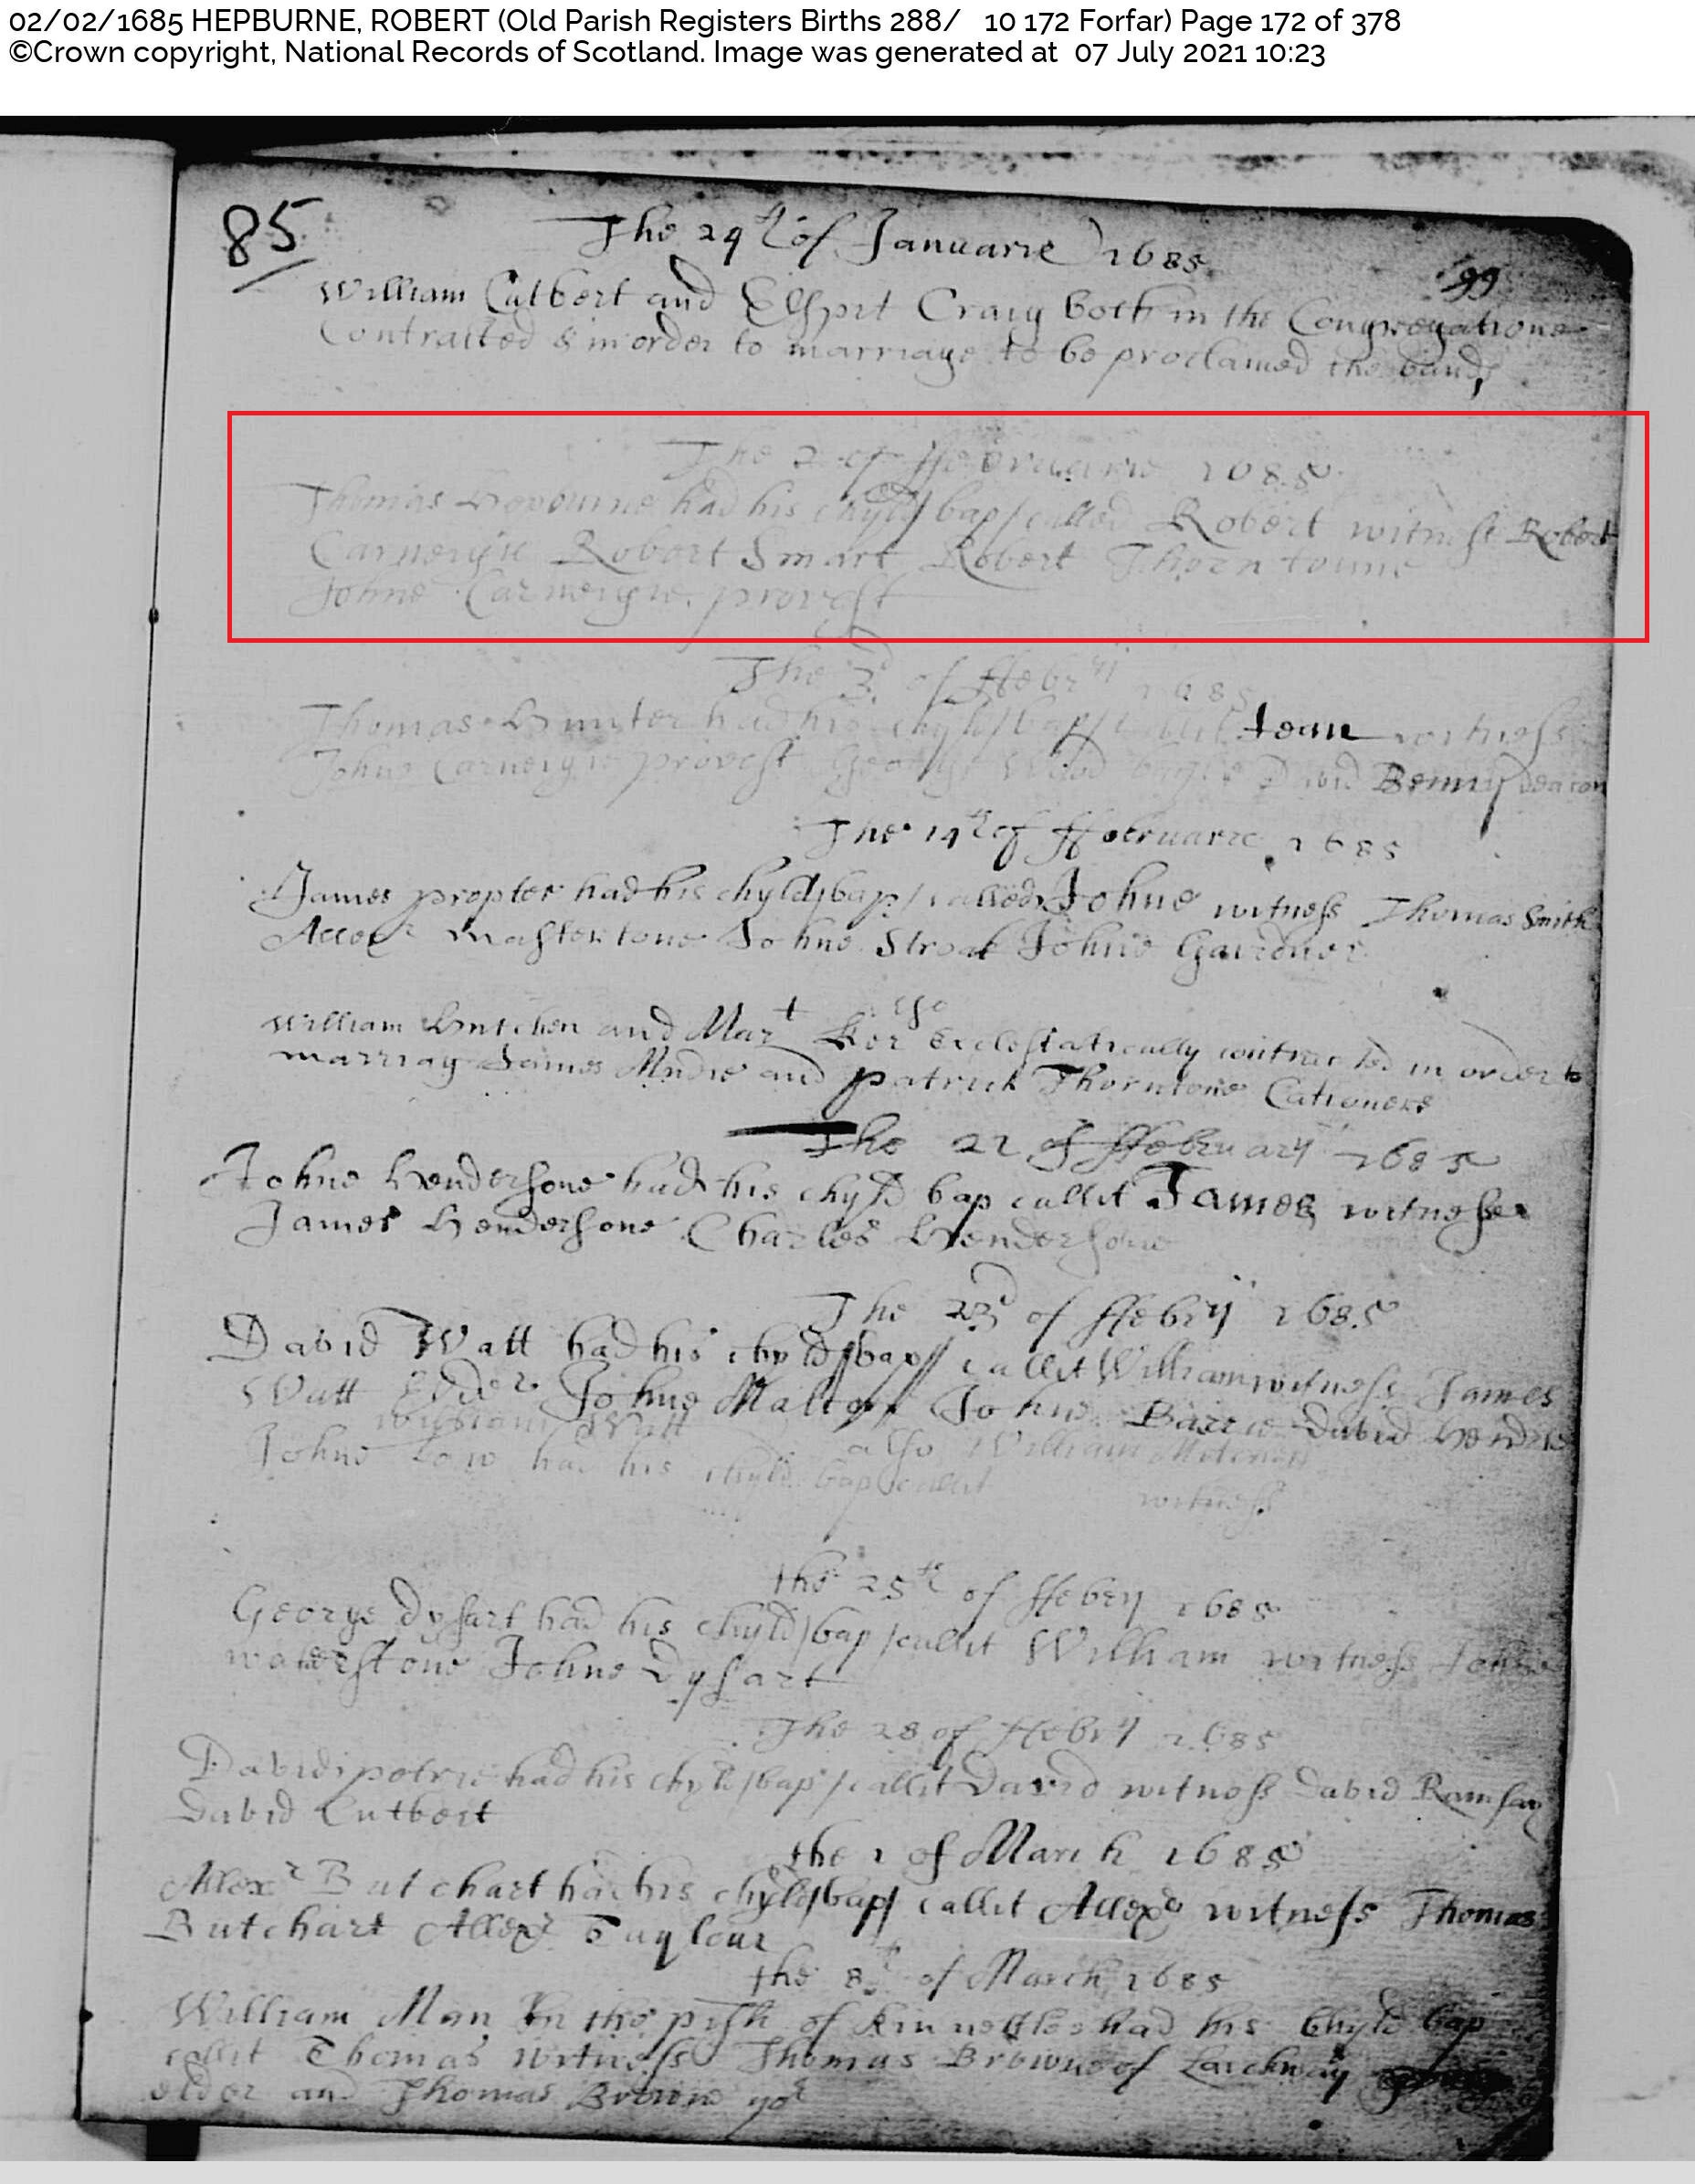 02/02/1685 HEPBURNE, ROBERT (Old Parish Registers Births 288/ 10 172 Forfar) Page 172 of 378
©Crown copyright, National Records of Scotland. Image was generated at 07 July 2021 10:23
85
The 29th of Januarie 1685
99
William Cutbert and Elspit Craig both in the Congregatione
Contracted & in order to marriage to be proclamed the bands
The 2 of ffebruarie 1685
Thomas Hepburne had his chyld/bap/called Robert witness Robert
Carnegye Robert Smart Robert Thorntoune
Johne Carneigie provest
The 3d of ffebrij 1685
Thomas Hunter had his chyld/bap/callit Jean witness
Johne Carneigie provest George Wood David Benny deacon
The 14th of ffebruarie 1685
James propter had his chyld/bap/called Johne witness Thomas Smith
Allexr Mastertone Johne Johne Gairdner
also
William Hutchen and Mart Ker Ecclesiatically contracted in order to
marriag James Mudie and patrick Thorntone Cationers
The 22 of ffebruarij 1685
Johne Hendersone had his chyld bap callit James witnesses
James Hendersone Charles Hendersone
The 23d of ffebrij 1685
David Watt had his chyld//bap// callit William witness James
Watt Elder Johne Johne Barrie David Hendrie
William Watt
also William
Johne Low had his chyld bap callit
witness
the 25th of ffebrij 1685
George Dysart had his chyld/bap/callit William witness Johne
waterstone Johne Dysart
The 28 of ffebrij 1685
David petrie had his chyld/bap/callit David witness David Ramsay
David Cutbert
the 1 of March 1685
Allexr Butchart had his chyld/bap/ callit Allexr witness Thomas
Butchart Allexr Taylour
the 8th of March 1685
William Man In the pish of Kinnettles had his Chyld bap
callit Thomas witness Thomas Browne of Lackway
elder and Thomas Brown yor